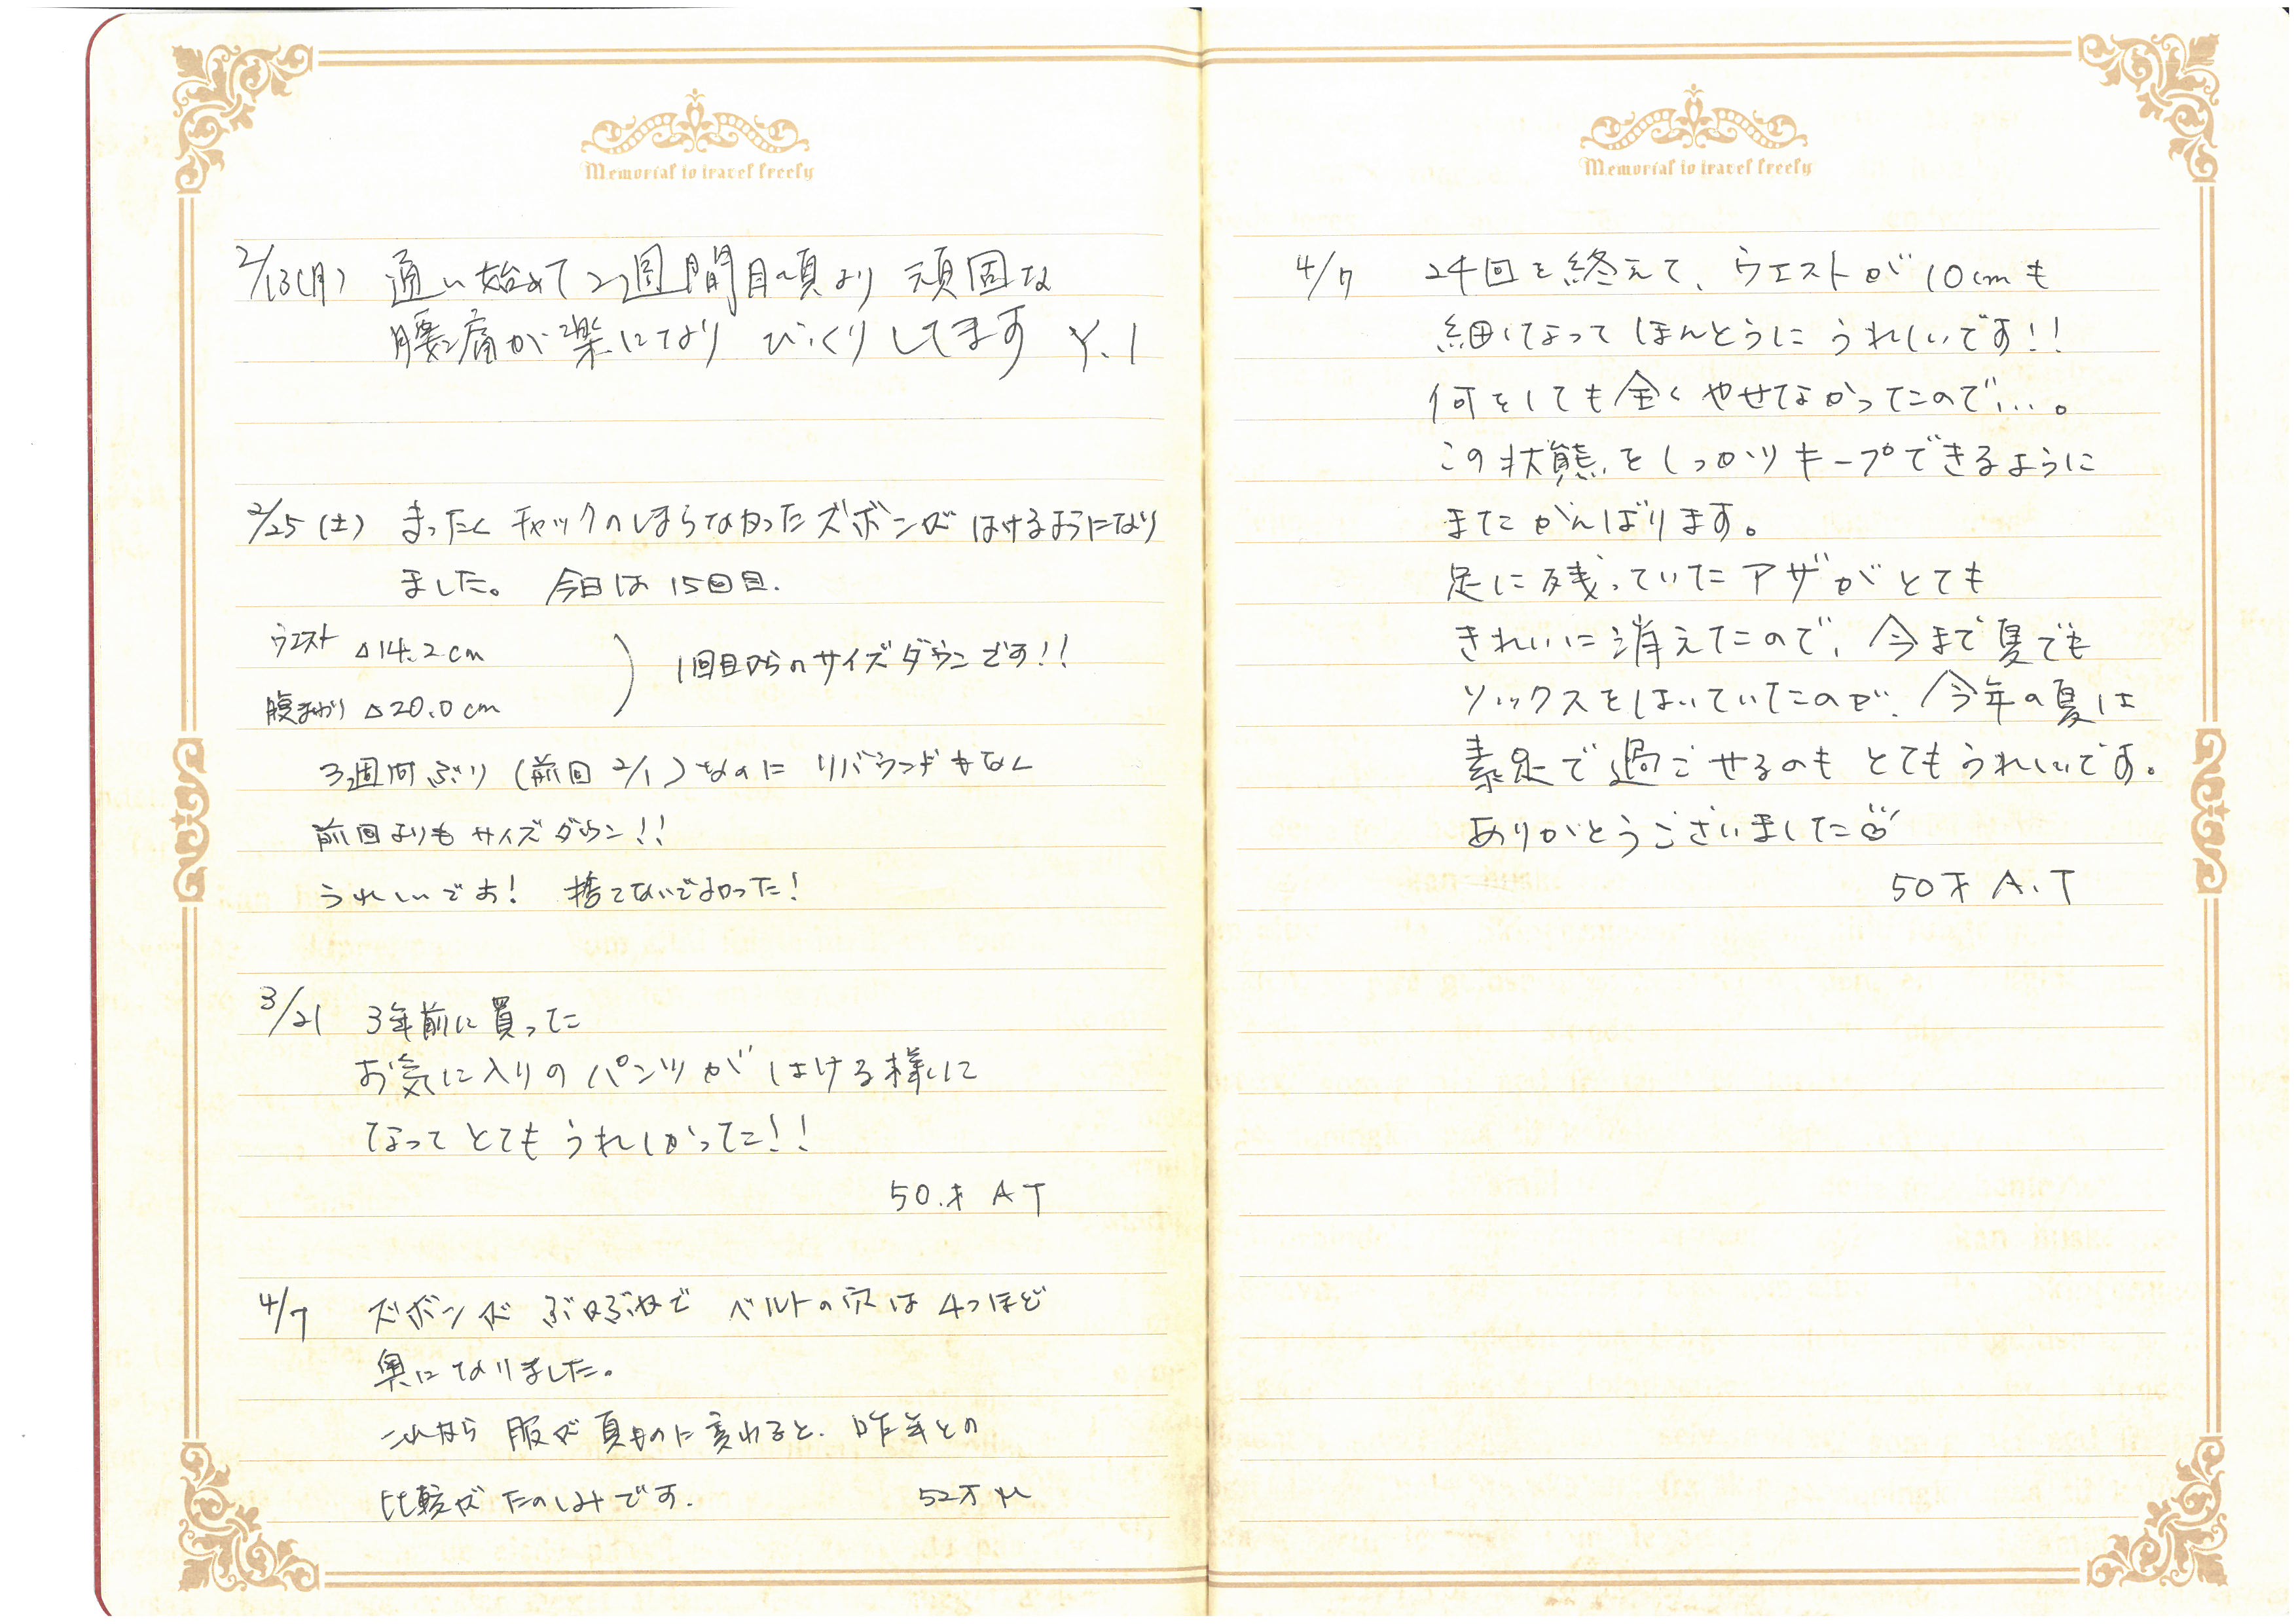 Memorial to travel freely
2/13(月) 通い始めて2週間目頃より 頑固な
腰痛が楽になり びっくりしてます Y.I
2/25(土) まったく チャックのしまらなかったズボンが はけるようになり
ました。 今日は 15回目.
ウエスト △14.2cm
腹まわり △20.0cm
1回目からのサイズダウンです!!
3週間ぶり (前回 2/1) なのに リバウンドもなく
前回よりも サイズダウン!!
うれしいです! 捨てないで よかった!
3/21 3年前に買った
お気に入りの パンツが はける様に
なって とても うれしかった!!
50才 A T
4/7 ズボンが ぶかぶかで ベルトの穴は 4つほど
奥になりました。
これから 服が 夏ものに変わると. 昨年との
比較が たのしみです. 52才 M
Memorial to travel freely
4/7 24回を終えて、ウエストが 10cmも
細くなって ほんとうに うれしいです!!
何をしても 全く やせてなかったので…。
この状態を しっかり キープできるように
また がんばります。
足に残っていた アザが とても
きれいに 消えたので、今まで夏でも
ソックスをはいていたのが、今年の夏は
素足で過ごせるのも とてもうれしいです。
ありがとうございました
50才 A.T